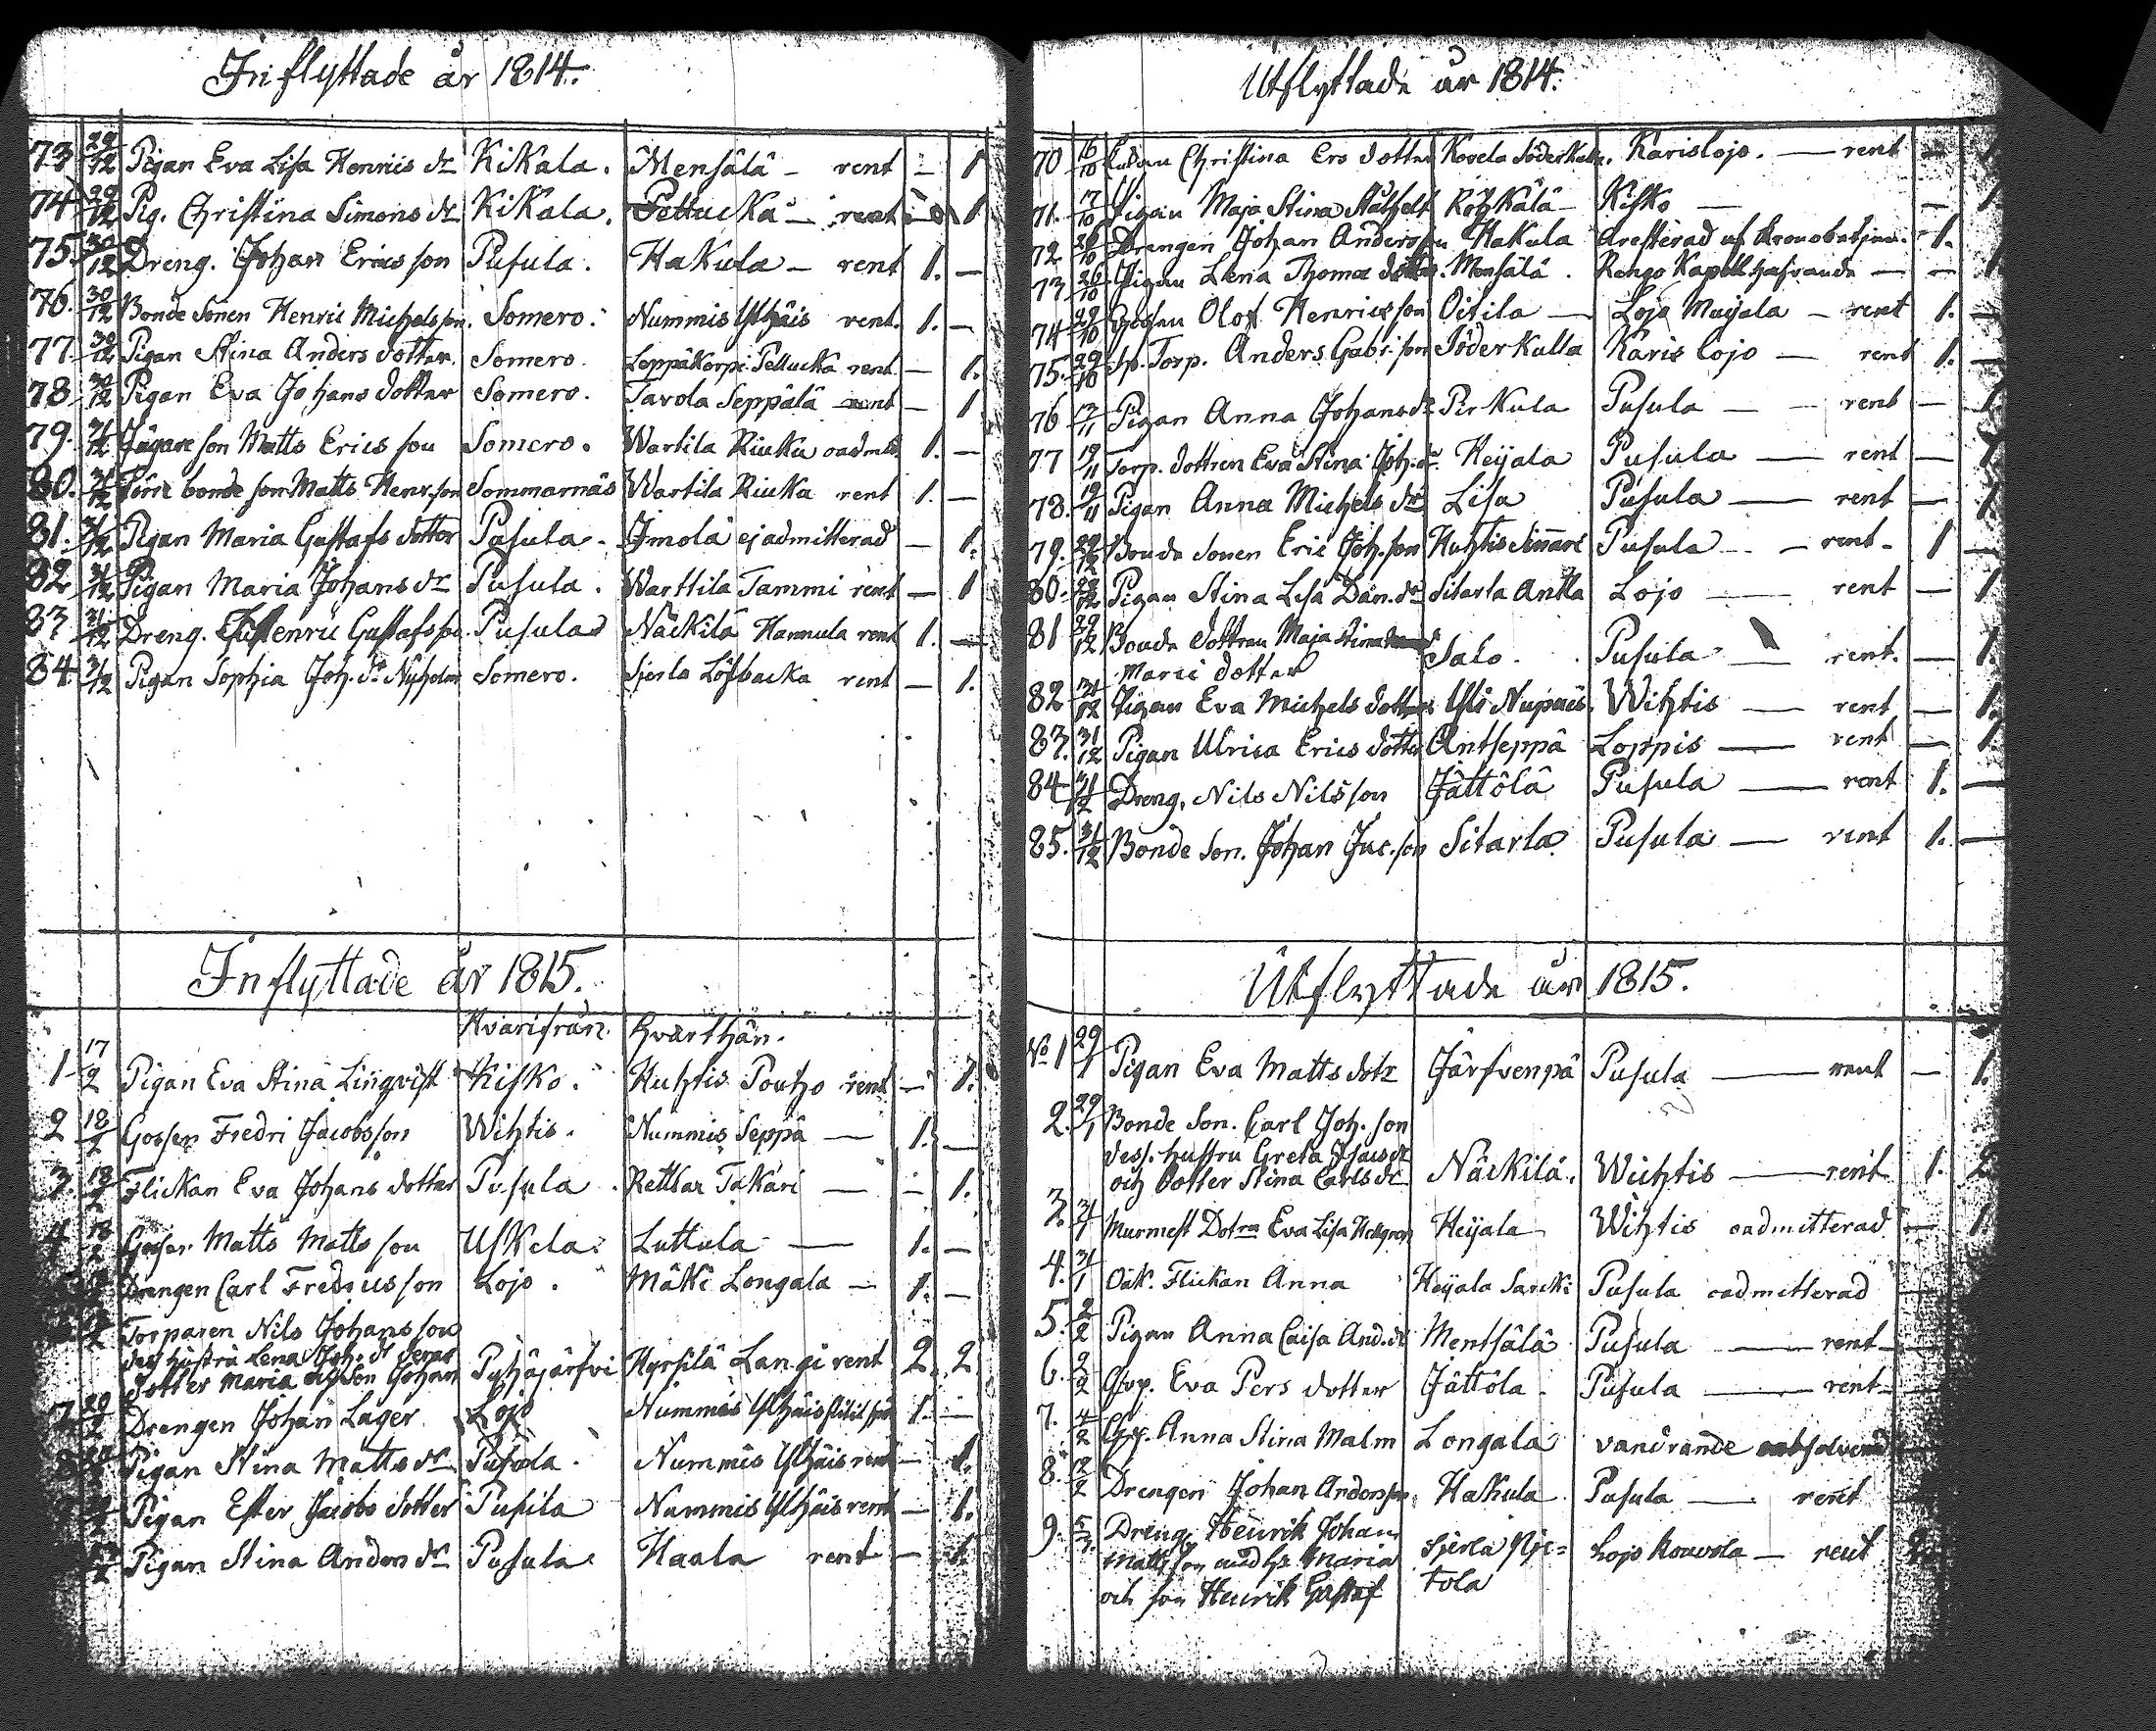 Inflyttade år 1814.
73 29/12 Pigan Eva Lisa Henrics dr Kikala. Mensälä - rent - 1
74 29/12 Pig. Christina Simons dr Kikala. Pettucka - rent - 1
75. 30/12 Dreng. Johan Ericsson Pusula. Hakula - rent 1. -
76. 30/12 Bonde Sonen Henric Michelsson. Somero. Nummis Ylhäis rent. 1. -
77. 30/12 Pigan Stina Anders dotter. Somero. Leppäkorpi Pettucka rent - 1.
78 30/12 Pigan Eva Johans dotter Somero. Tavola Seppälä rent - 1
79. 31/12 Jägare son Matts Ericsson Somero. Wartila Riuku oadmit. 1. -
80. 31/12 bonde son Matts Henr.son Sommarnäs Wartila Riuka rent 1. -
81. 31/12 Pigan Maria Gustafs dotter Pusula. Imola ej admitterad - 1.
82 31/12 Pigan Maria Johans dr Pusula. Warttila Tammi rent - 1
83. 31/12 Dreng. Henric Gustafsson. Pusula Näckilä Hannula rent 1. -
84 31/12 Pigan Sophia Joh. dr Somero. Sjerla Löfbacka rent - 1.
Inflyttade år 1815.
Hvarifrån. hvarthän.
1 17/2 Pigan Eva Stina Lingvist Kisko. Huhtis Poutzo rent - 1.
2 18/2 Gossen Fredri Jacobsson Wihtis. Nummis Seppä - 1. -
3. 18/2 Flickan Eva Johans dotter Pusula. Rettlax Takari - - 1.
4 18/2 Gossen Matts Matts son Uskela. Luttula - 1. -
Drengen Carl Fredricsson Lojo. Mäki Longala - 1. -
Torparen Nils Johansson
dess hustru Lena Joh. dr deras
dotter Maria och son Johan Pyhäjärfvi Hyrsilä Langi rent 2. 2.
7 20/2 Drengen Johan Lager. Lojo Nummis Ylhäis 1. -
8 Pigan Stina Matts dr Pusula. Nummis Ylhäis rent - 1.
Pigan Ester Jacobs dotter Pusula Nummis Ylhäis rent - 1.
Pigan Stina Anders dr Pusula Haala rent - 1.
Utflyttade år 1814.
70 16/10 Christina Ers dotter Kovela Söderkulla. Karislojo. - rent -
71. 17/10 Pigan Maja Stina Kisko - -
72 26/10 Drengen Johan Andersson Hakula Arresterad af Kronobetjen. 1.
73 26/10 Pigan Lena Thomae dotter. Mensälä. Rengo Kapell - -
74 29/10 Gossen Olof Henricsson Oitila - Lojo Maijala - rent 1. -
75. 29/10 Torp. Anders Gabr.son Söderkulla Karislojo - rent 1. -
76 17/11 Pigan Anna Johans dr Pirkula Pusula - rent - 1
77 19/11 Torp. dottren Eva Stina Joh. dr. Heijala Pusula - rent - 1
78. 19/11 Pigan Anna Michels dr Lisa Pusula - rent - 1.
79. 22/12 Bonde Sonen Eric Joh.son Huhtis Pusula - rent - 1 -
80. 22/12 Pigan Stina Lisa Dan. dr Sitarla Antla Lojo - rent - 1.
81 29/12 Bonde dottren Maja Stina
Marci dotter Salo. Pusula - rent. - 1.
82 31/12 Pigan Eva Michels dotter Yli Nupnäis. Wihtis - rent - 1.
83. 31/12 Pigan Ulrica Erics dotter Antseppä Loppis - rent - 1
84 31/12 Dreng. Nils Nilsson Jättölä Pusula - rent 1. -
85. 31/12 Bonde Son. Johan Jac.son Sitarla Pusula - rent 1. -
Utflyttade år 1815.
No 1 29/1 Pigan Eva Matts dotr Järfvenpä Pusula - rent - 1.
2. 29/1 Bonde Son. Carl Joh. son
dess. hustru Greta Isacs dr
och Dotter Stina Carls dr Näckilä. Wichtis - rent 1. 2
3. 31/1 Murmest Dotren Eva Lisa Hellgren Heijala Wihtis oadmitterad - 1.
4. 31/1 Oäk. Flickan Anna Heijala Sarcki Pusula oadmitterad
5. 2/2 Pigan Anna Caisa And. dr Mentsälä Pusula - rent -
6. 2/2 Eva Pers dotter Jättölä Pusula - rent -
7. 4/2 Anna Stina Malm Longala vandrande
8. 12/2 Drengen Johan Andersson. Hakula Pusula - rent
9. Dreng. Henrik Johan
Mattsson med h. Maria Sjerla Pie= Lojo Kouvola - rent 2.
och son Henrik Gustaf tola